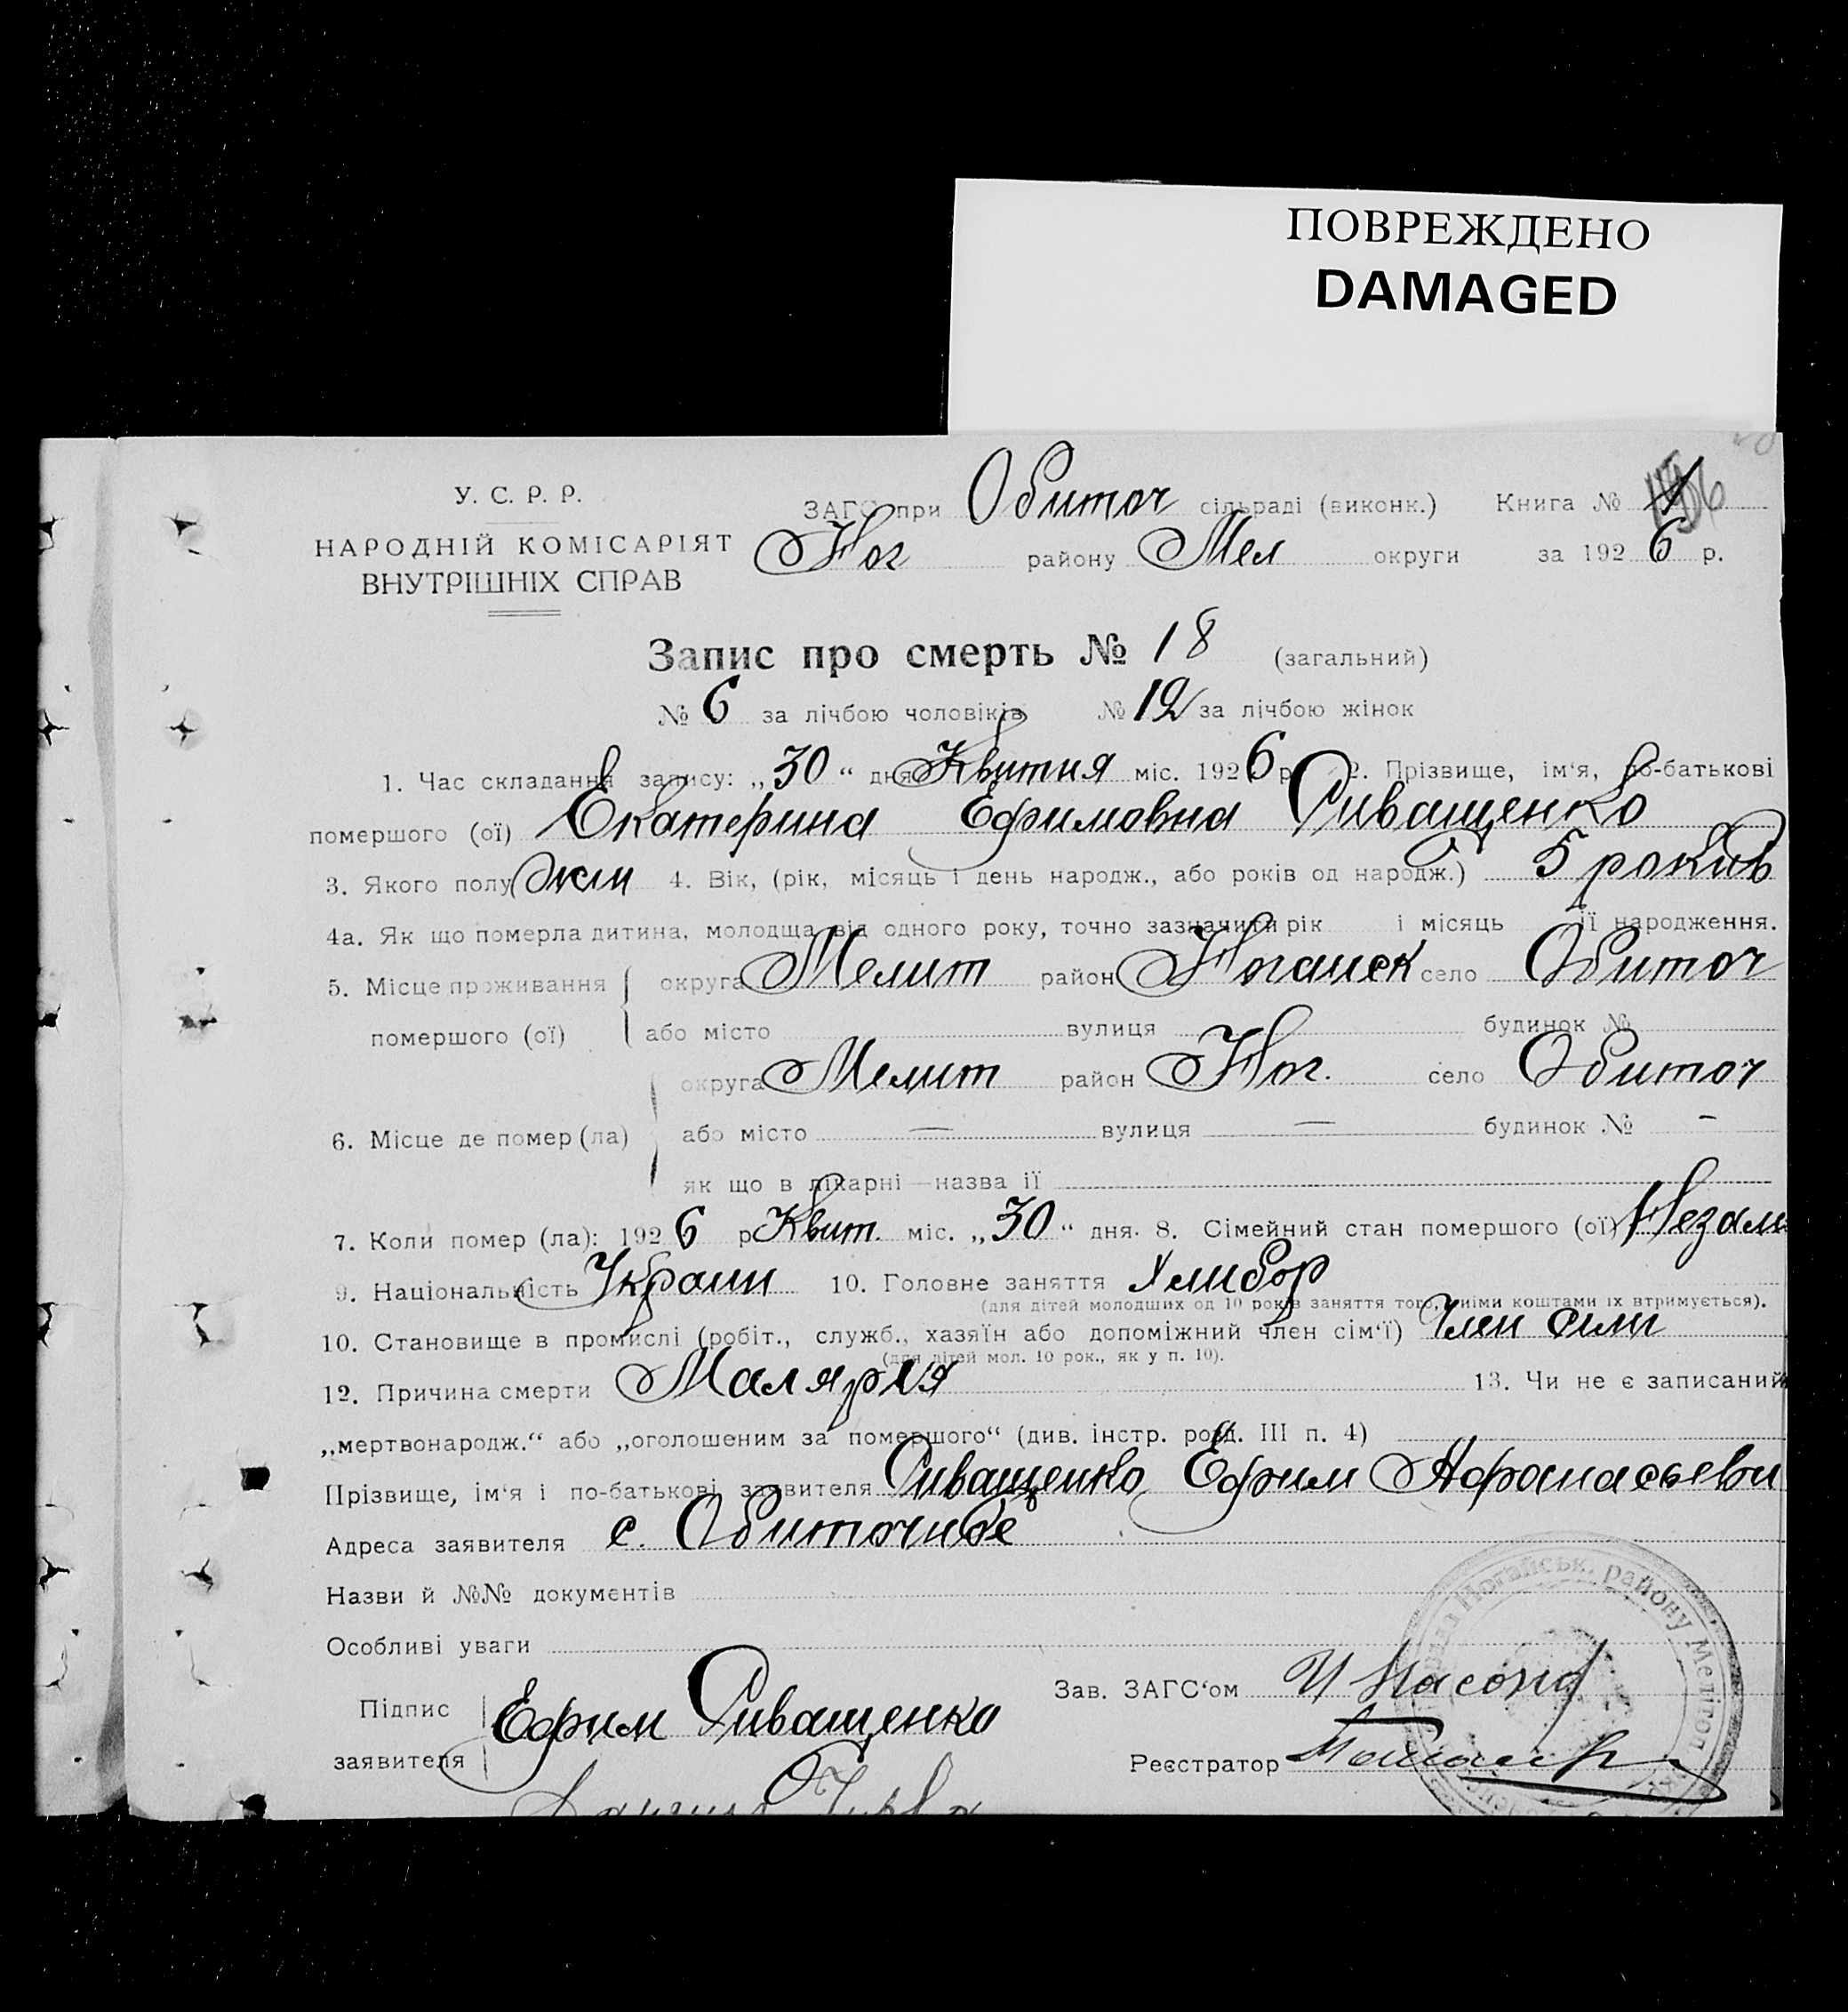 ПОВРЕЖДЕНО
DAMAGED
У. С. Р. Р.
НАРОДНІЙ КОМІСАРІЯТ
ВНУТРІШНІХ СПРАВ
ЗАГС при Обиточ сільраді (виконк.) Книга №
Ног району Мел округи за 1926 р.
Запис про смерть № 18 (загальний)
№ 6 за лічбою чоловіків № 12 за лічбою жінок
1. Час складання запису: „30“ дня Квитня міс. 1926 р. 2. Прізвище, ім‘я, по-батькові
помершого (ої) Екатерина Ефимовна Сиващенко
3. Якого полу жін 4. Вік, (рік, місяць і день народж., або років од народж.) 5 рокив
4а. Як що померла дитина, молодща від одного року, точно зазначити рік і місяць її народження.
5. Місце проживання помершого (ої) округа Мелит район Ногайск село Обиточ
або місто вулиця будинок №
6. Місце де помер (ла) округа Мелит район Ног. село Обиточ
або місто — вулиця — будинок № -
як що в лікарні—назва її
7. Коли помер (ла): 1926 р Квит. міс. „30“ дня. 8. Сімейний стан помершого (ої) Незам
9. Національність Украин 10. Головне заняття Хлибор
(для дітей молодших од 10 років заняття того, чиїми коштами їх втримується).
10. Становище в промислі (робіт., служб., хазяїн або допоміжний член сім‘ї) Член сим
(для дітей мол. 10 рок., як у п. 10).
12. Причина смерти Малярия 13. Чи не є записаний
„мертвонародж.“ або „оголошеним за помершого“ (див. інстр. розд. III п. 4)
Прізвище, ім‘я і по-батькові заявителя Сиващенко Ефим Афанасьеви
Адреса заявителя с. Обиточное
Назви й №№ документів
Особливі уваги
Підпис заявителя Ефим Сиващенко
Зав. ЗАГС‘ом
Реєстратор
Ногайськ. району Мелітоп.